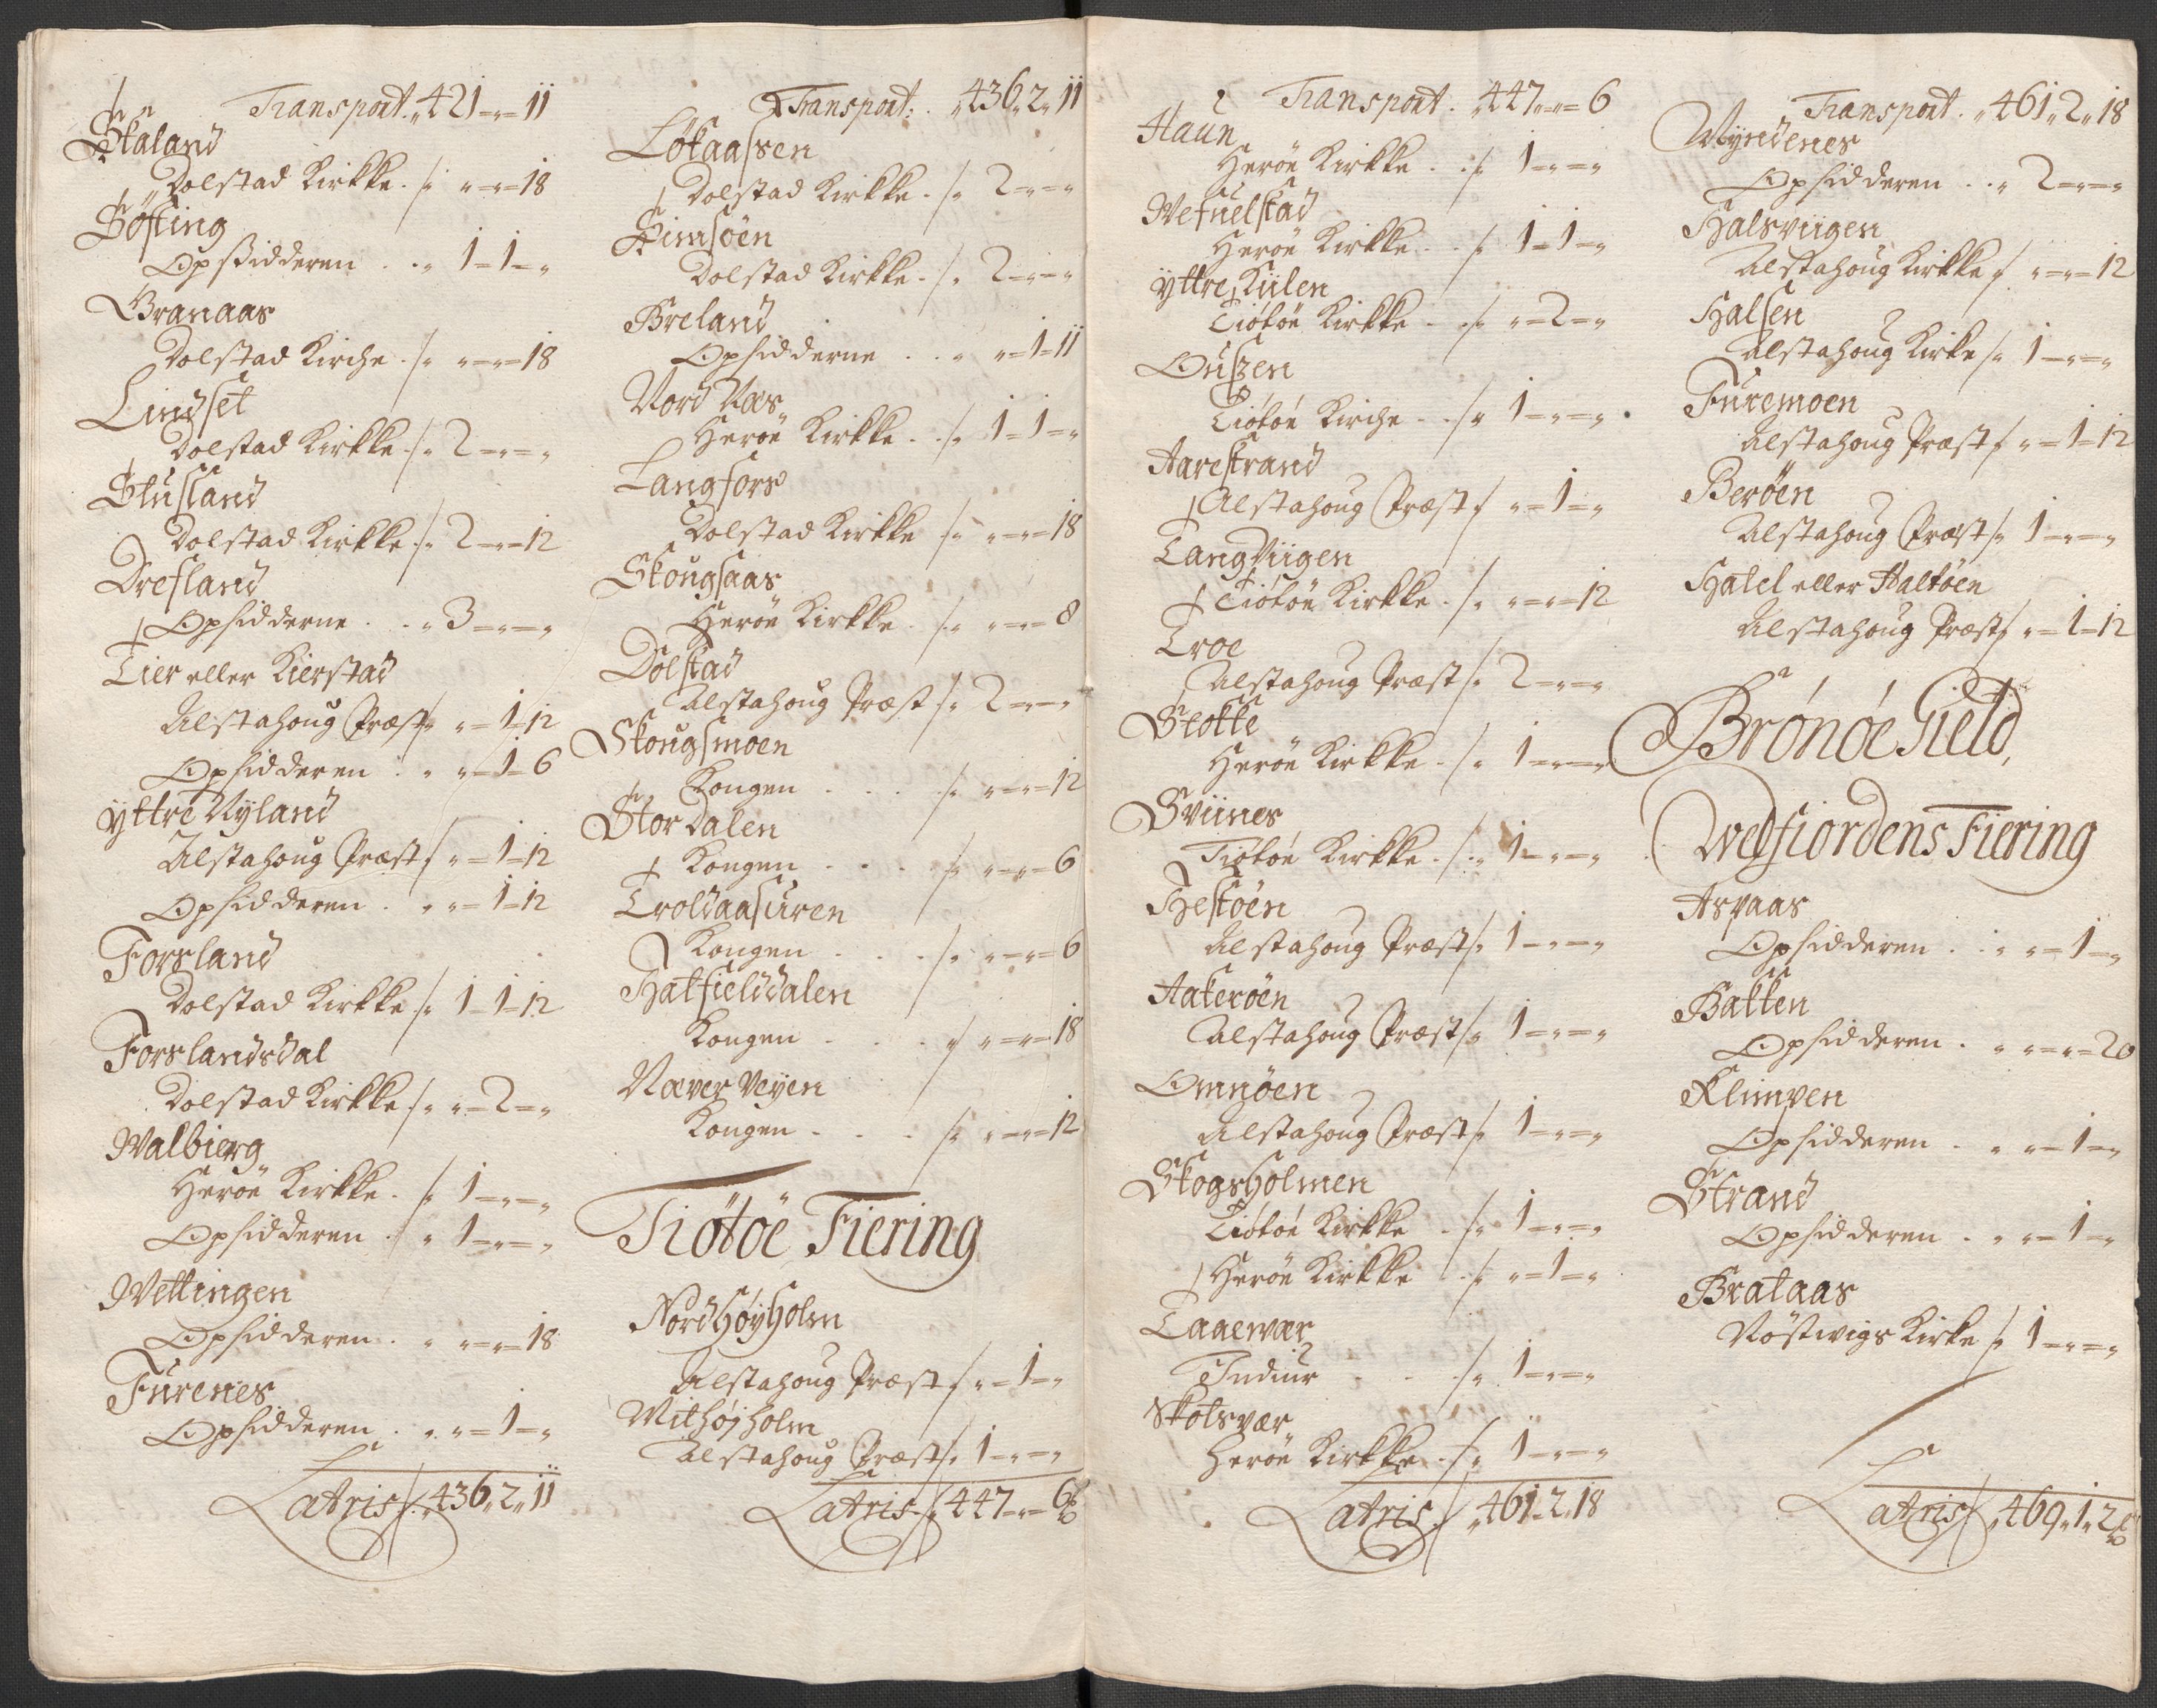 Transport. „ 421 „=„= 11
Staland
Dolstad Kirkke . /. „=„= 18
Søfting
Opsidderen . . „ 1=1=„
Granaas
Dolstad Kirche . /. „=„= 18
Lindset
Dolstad Kirkke /. 2=„=„
Stusland
Dolstad Kirkke /. 2=„=12
Drefland
Opsidderne . . „ 3=„=„
Tier eller Kierstad
Alstahoug Præst /. „=1=12
Opsidderen . „ „=1=6
Yttre Nyland
Alstahoug Præst /. „=1=12
Opsidderen . „ „=1=12
Forsland
Dolstad Kirkke /. 1=1=12
Forslandsdal
Dolstad Kirkke /. „=2=„
Walbierg
Herøe Kirkke . /. 1=„=„
Opsidderen . „ 1=„=„
Wettingen
Opsidderen . „ „=„=18
Furenes
Opsidderen . „ „=1=„
Latris /. 436„2„11
Transport. „ 436„2„11
Løkaasen
Dolstad Kirkke . /. 2=„=„
Simsøen
Dolstad Kirkke . /. 2=„=„
Breland
Opsidderne . . „ „=1=11
Nord Næs
Herøe Kirkke . /. 1=1=„
Langfors
Dolstad Kirkke /. „=„=18
Skougsaas
Herøe Kirkke . /. „=„=8
Dolstad
Alstahoug Præst /. 2=„=„
Skougsmoen
Kongen . . . /. „=„=12
Stor Dalen
Kongen . . . /. „=„=6
Troldaasuren
Kongen . . . /. „=„=6
Hatfieldalen
Kongen . . . /. „=„=18
Næver Veyen
Kongen . . . /. „=„=12
Tiøtøe Fiering
Nordhøyholm
Alstahoug Præst /. „=1=„
Mithøjholm
Alstahoug Præst /. 1=„=„
Latris /. 447=„=6
Transport . „ 447„=„=6
Haun
Herøe Kirkke . . /. 1=„=„
Wefuelstad
Herøe Kirkke . . /. 1=1=„
Yttre Kulen
Tiøtøe Kirkke . . /. „=2=„
Ouszen
Tiøtøe Kirche . . /. 1=„=„
Aarestrand
Alstahoug Præst /. „=1=„
Tangviigen
Tiøtøe Kirkke . /. „=„=12
Troe
Alstahoug Præst /. 2=„=„
Stokke
Herøe Kirkke . /. 1=„=„
Sviines
Tiøtøe Kirkke . /. 1=„=„
Hestøen
Alstahoug Præst /. 1=„=„
Aakerøen
Alstahoug Præst /. 1=„=„
Omnøen
Alstahoug Præst /. 1=„=„
Skogsholmen
Tiøtøe Kirkke . /. 1=„=„
Herøe Kirkke . /. „=1=„
Taaewær
. . /. 1=„=„
Skotsvær
Herøe Kirkke . /. 1=„=„
Latris /. „461=2„18
Transport . „ 461„2„18
Wyndenes
Opsidderen . . „ 2=„=„
Halsviigen
Alstahoug Kirkke /. „=„=12
Halsen
Alstahoug Kirke /. 1=„=„
Furemoen
Alstahoug Præst /. „=1=12
Berøen
Alstahoug Præst /. 1=„=„
Hatel eller Haltøen
Alstahoug Præst /. „=1=12
Brønøe Gield,
Welfiordens Fiering
Aspaas
Opsidderen . . „ „=1=„
Bakken
Opsidderen . „ „=„=20
Klimpen
Opsidderen . „ „=1=„
Strand
Opsidderen . „ „=1=„
Brataas
Nøstwigs Kirke /. 1=„=„
Latris /. „469„1„2